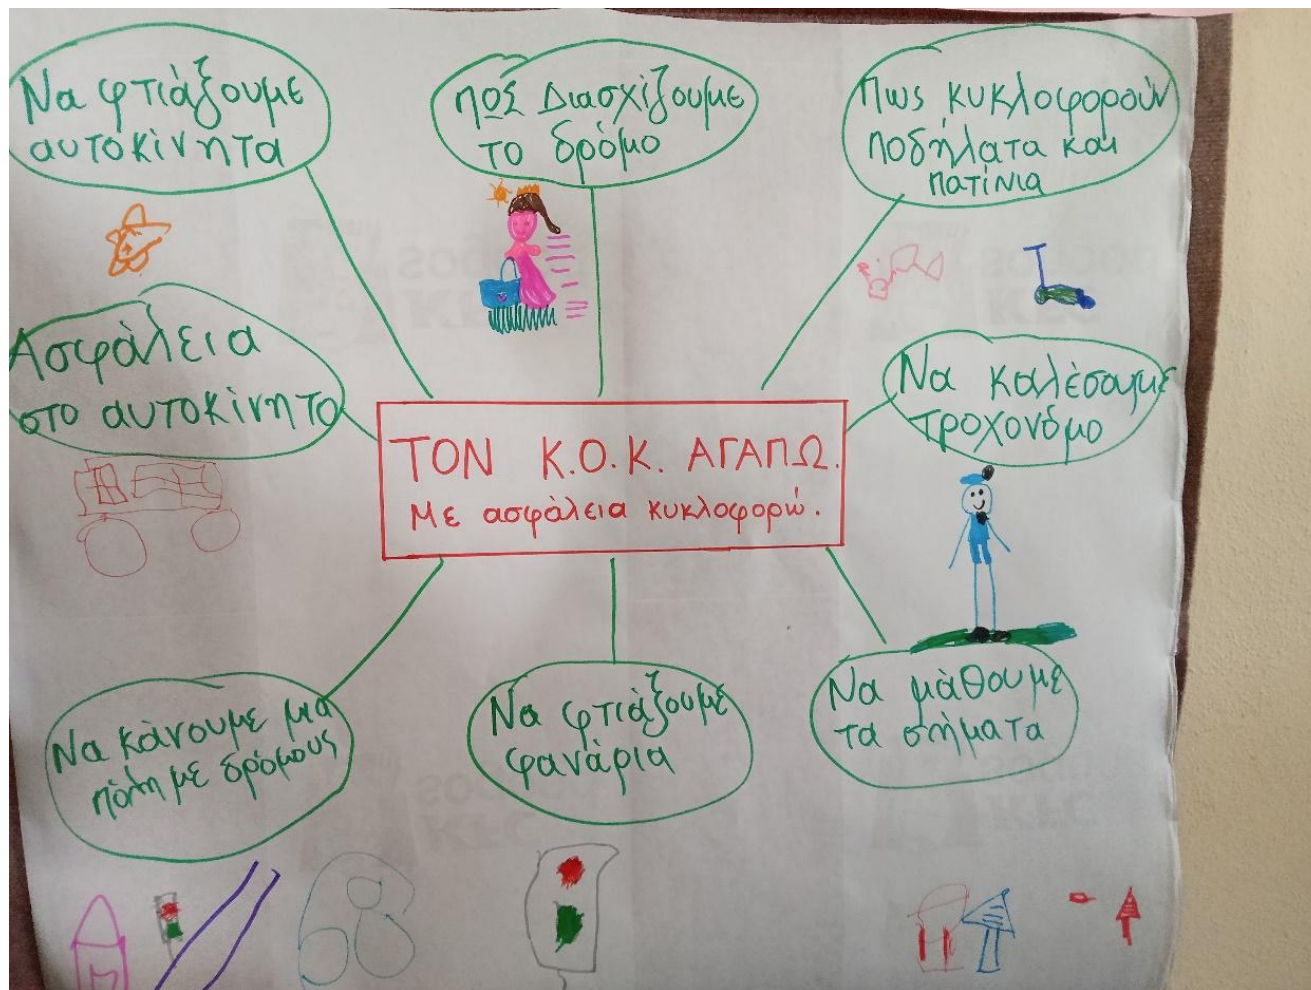 Να φτιάξουμε
αυτοκίνητα
ΠΩΣ Διασχίζουμε
το δρόμο
Πως κυκλοφορούν
ποδήλατα και
πατίνια
Ασφάλεια
στο αυτοκίνητο
Να καλέσουμε
τροχονόμο
ΤΟΝ Κ.Ο.Κ. ΑΓΑΠΩ.
Με ασφάλεια κυκλοφορώ.
Να κάνουμε μια
πόλη με δρόμους
Να φτιάξουμε
φανάρια
Να μάθουμε
τα σήματα